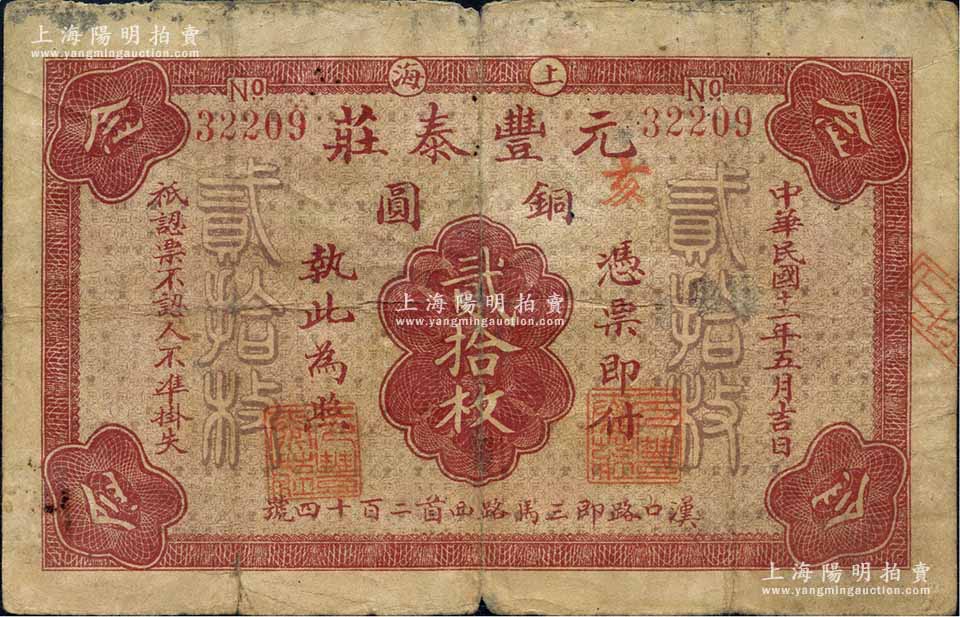 上海陽明拍賣
www.yangmingauction.com
上海
No 32209
No 32209
元豐泰莊
銅圓
亥
中華民國十一年五月吉日
貳拾枚
憑票即付
貳拾枚
執此為照
貳拾枚
祇認票不認人不准掛失
漢口路即三馬路西首二百十四號
上海陽明拍賣
www.yangmingauction.com
上海陽明拍賣
www.yangmingauction.com